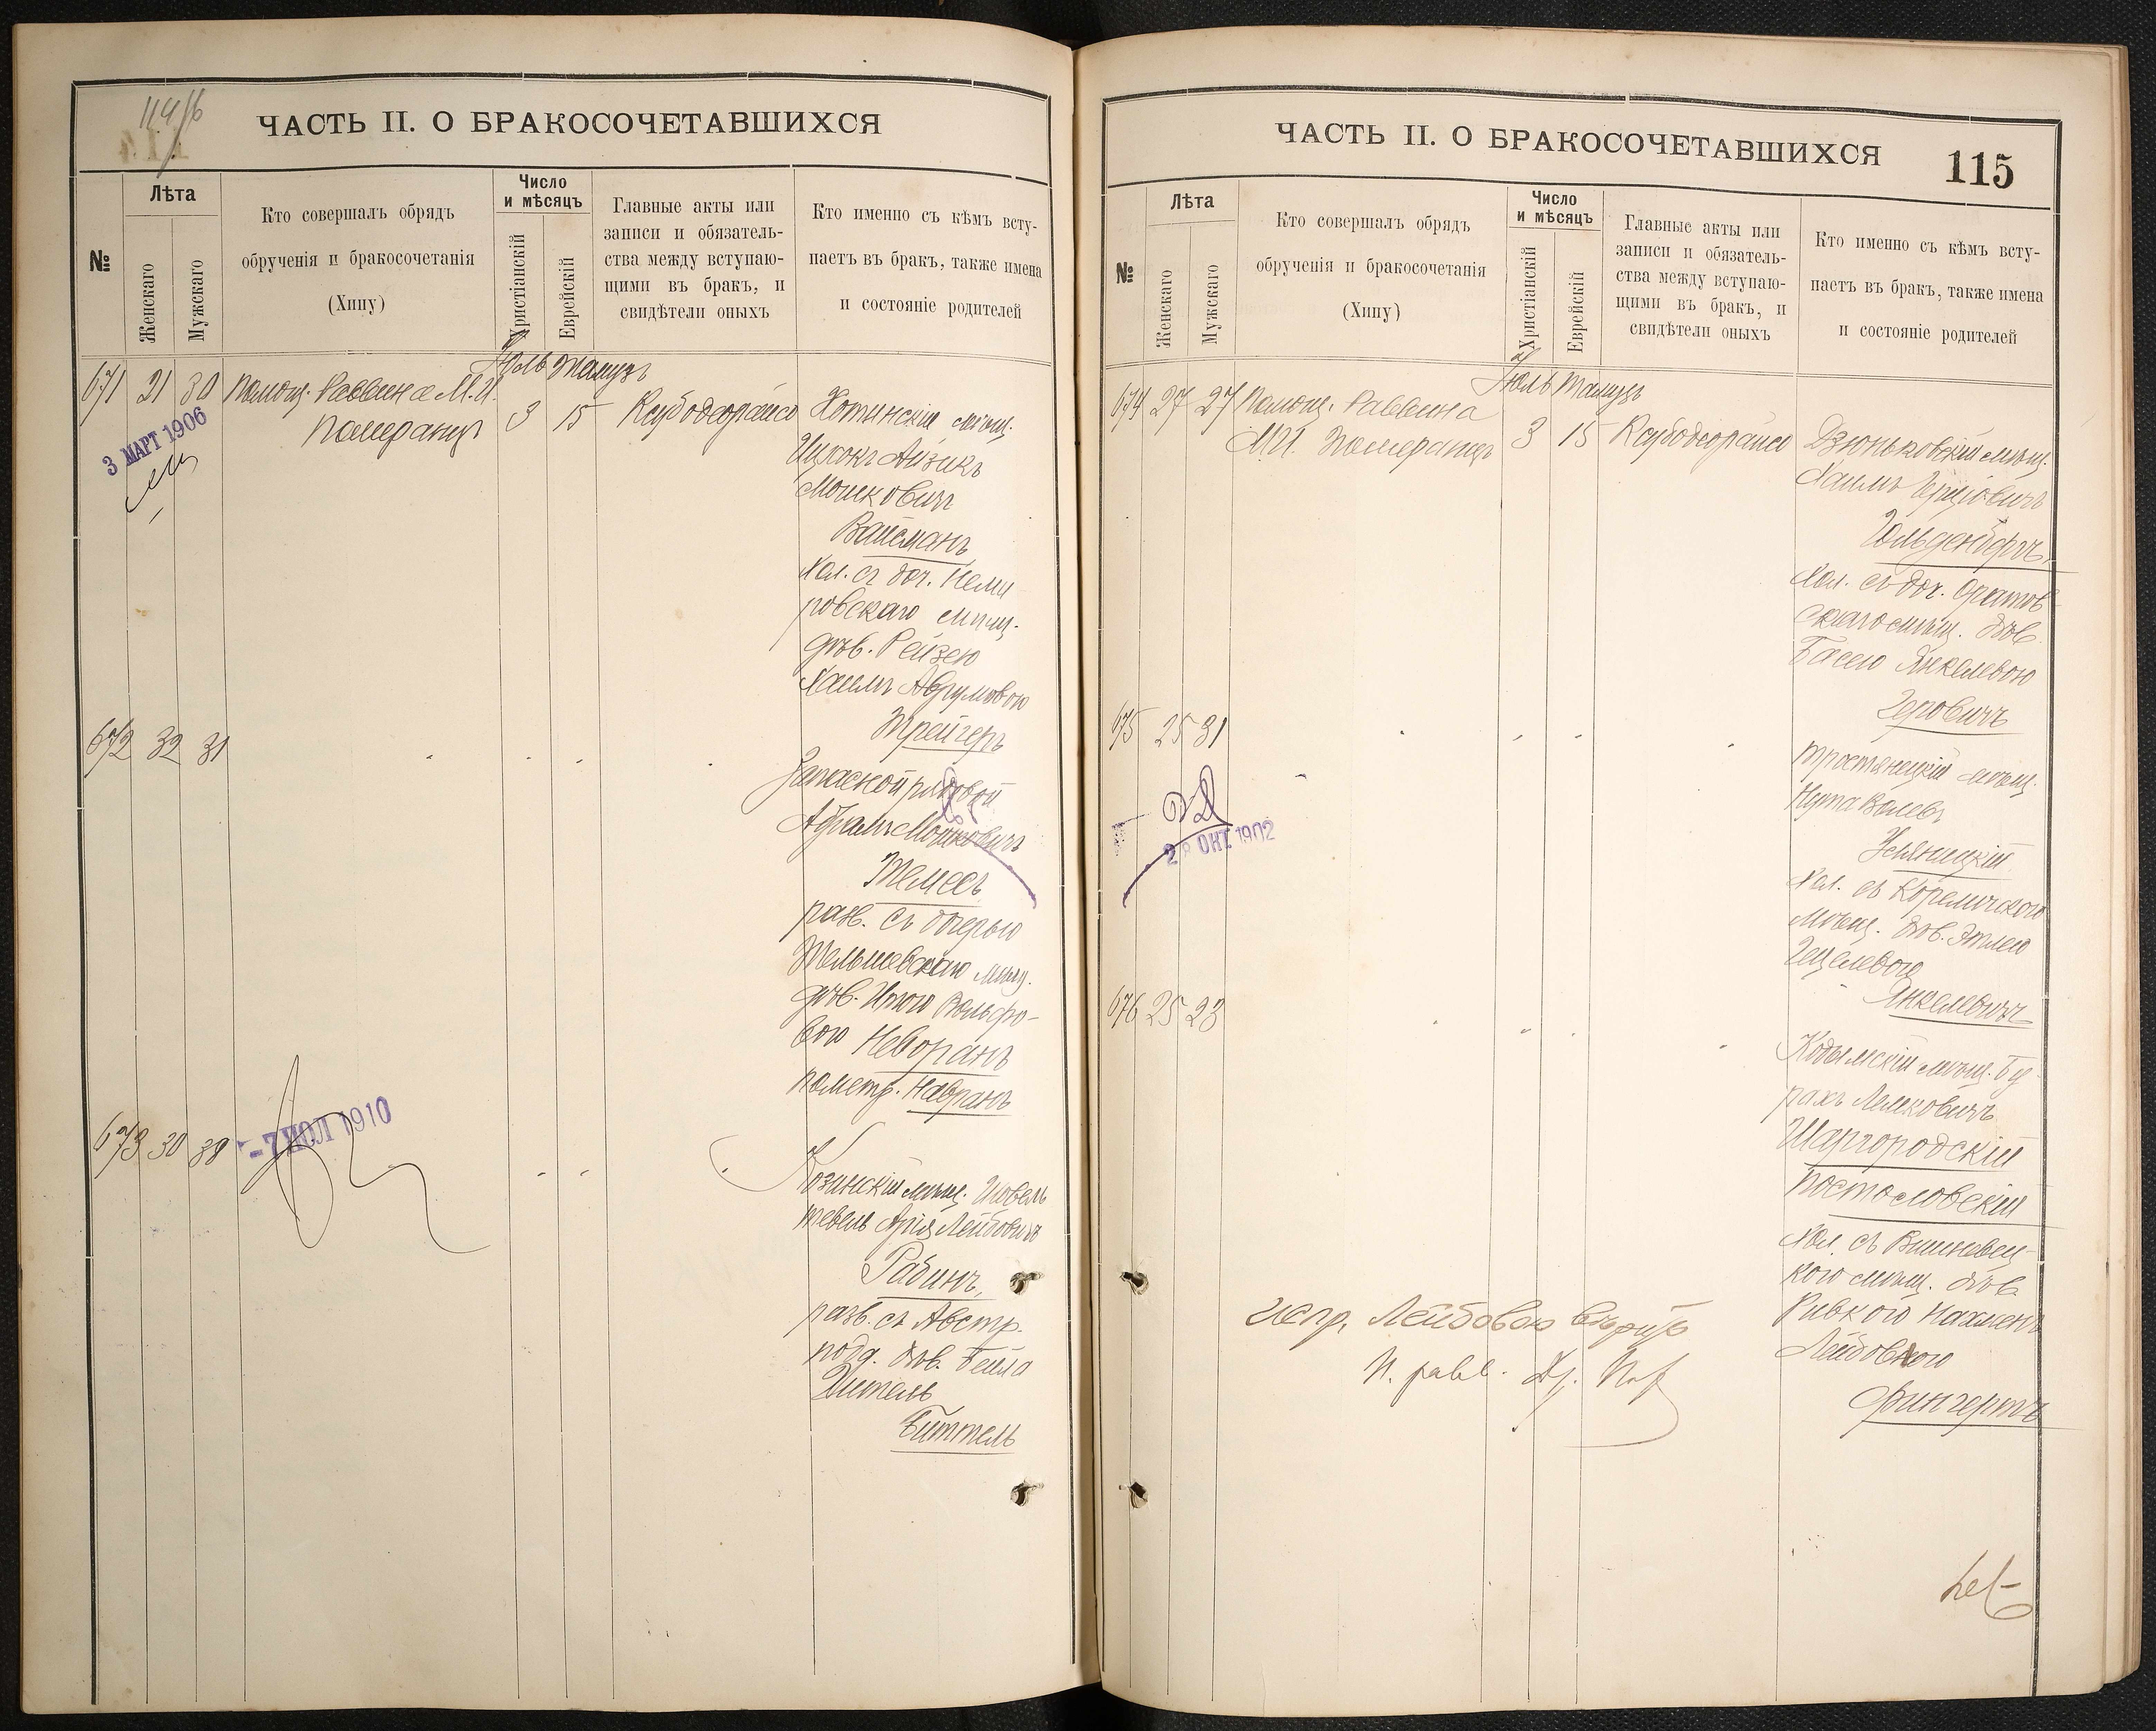 114/б
ЧАСТЬ II. О БРАКОСОЧЕТАВШИХСЯ
№
Лѣта
Женскаго
Мужскаго
Кто совершалъ обрядъ
обрученія и бракосочетанія
(Хипу)
Число
и мѣсяцъ
Христіанскій
Еврейскій
Главные акты или
записи и обязатель-
ства между вступаю-
щими въ бракъ, и
свидѣтели оныхъ
Кто именно съ кѣмъ всту-
паетъ въ бракъ, также имена
и состояніе родителей
Іюль Тамузъ
671 21 30 Помощ. Раввина М.И.
Померанцъ 3 15
3 МАРТ 1906
Хотинскій мѣщ.
Ицхокъ Айзикъ
Мошковичъ
Вайсманъ
хол. съ доч. Неми
ровскаго мѣщ.
дѣв. Рейзею
Абрумовою
Трейгеръ
672 32 31
Запасной рядовой
Абрамъ Мошковичъ
Темесъ
разв. съ дочерью
Тельшевскаго мѣщ.
дѣв. Итою Вольфо-
вою Неворанъ
пометр. Навранъ
673 30 38
-7 ИЮЛ 1910
Козинскій мѣщ.
Тевель Арія Лейбовичъ
Рабинъ,
разв. съ Австр.
подд. дѣв. Бейла
Дитель
Биттель
ЧАСТЬ II. О БРАКОСОЧЕТАВШИХСЯ
115
№
Лѣта
Женскаго
Мужскаго
Кто совершалъ обрядъ
обрученія и бракосочетанія
(Хипу)
Число
и мѣсяцъ
Христіанскій
Еврейскій
Главные акты или
записи и обязатель-
ства между вступаю-
щими въ бракъ, и
свидѣтели оныхъ
Кто именно съ кѣмъ всту-
паетъ въ бракъ, также имена
и состояніе родителей
Іюль Тамузъ
674 27 27 Помощ. Раввина
М.И. Померанцъ 3 15
Дзюньковскій мѣщ.
Хаимъ Герцовичъ
Гольденбергъ,
хол. съ доч. Оратов
скаго мѣщ. дѣв.
Басею Янкелевою
Геровичъ
675 25 31
28 ОКТ 1902
Тростянецкій мѣщ.
Нута Волевъ
хол. съ Кореличскою
мѣщ. дѣв. Этлею
Гецелевою
Янкелевичъ
676 25 23
Кодымскій мѣщ. Бу
рахъ Лемковичъ
Шаргородскій
Постоловскій
хол. съ Вишневец-
кою мѣщ. дѣв
Ривкою Нахменъ
Лейбовною
Фингертъ
испр. Лейбовою вѣрить
П. равв.